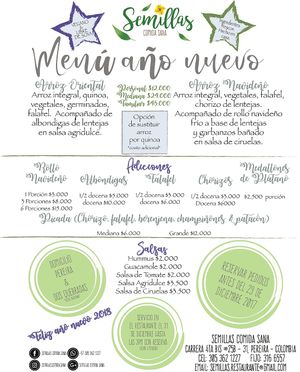 VEGANO
Semillas
COMIDA SANA
Menú año nuevo
Arroz Oriental
Arroz integral, quinoa,
vegetales, germinados,
falafel. Acompañado de
albondigas de lentejas
en salsa agridulce.
Personal $12.000
Mediano $24.000
Familiar $45.000
Opción
de sustituir
arroz
por quinoa
*costo adicional*
Arroz Navideño
Arroz integral, vegetales, falafel,
chorizo de lentejas.
Acompañado de rollo navideño
frío a base de lentejas
y garbanzos bañado
en salsa de ciruelas.
Adiciones
Rollo
Navideño
1 Porción $3.000
3 Porciones $8.000
6 Porciones $15.000
Albóndigas
1/2 docena $5.000
docena $10.000
Falafel
1/2 docena $3.000
docena $6.000
Chorizos
1/2 docena $6.000
docena $12.000
Medallones
de Plátano
$2.500 porción
Picada (Chorizo, falafel, berenjena, champiñones & patacón)
Mediana $6.000
Grande $12.000
Salsas
Hummus $2.000
Guacamole $2.000
Salsa de Tomate $2.000
Salsa Agridulce $3.500
Salsa de Ciruelas $3.500
DOMICILIO
PEREIRA
&
DOS QUEBRADAS
RESERVAR PEDIDOS
ANTES DEL 29 DE
DICIEMBRE 2017
SERVICIO EN
EL RESTAURANTE EL 31
DE DICIEMBRE HASTA
LAS 3PM CON RESERVA
Feliz año nuevo 2018
SEMILLAS COMIDA SANA
CARRERA 4TA BIS #25B - 31, PEREIRA - COLOMBIA
CEL: 305 362 1227 FIJO: 316 6957
EMAIL: SEMILLAS.RESTAURANTE@GMAIL.COM